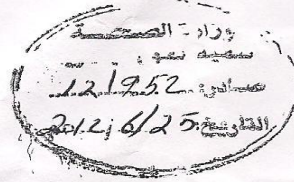 وزارة الصحة
صادر: 12/952
التاريخ: 2012/6/25